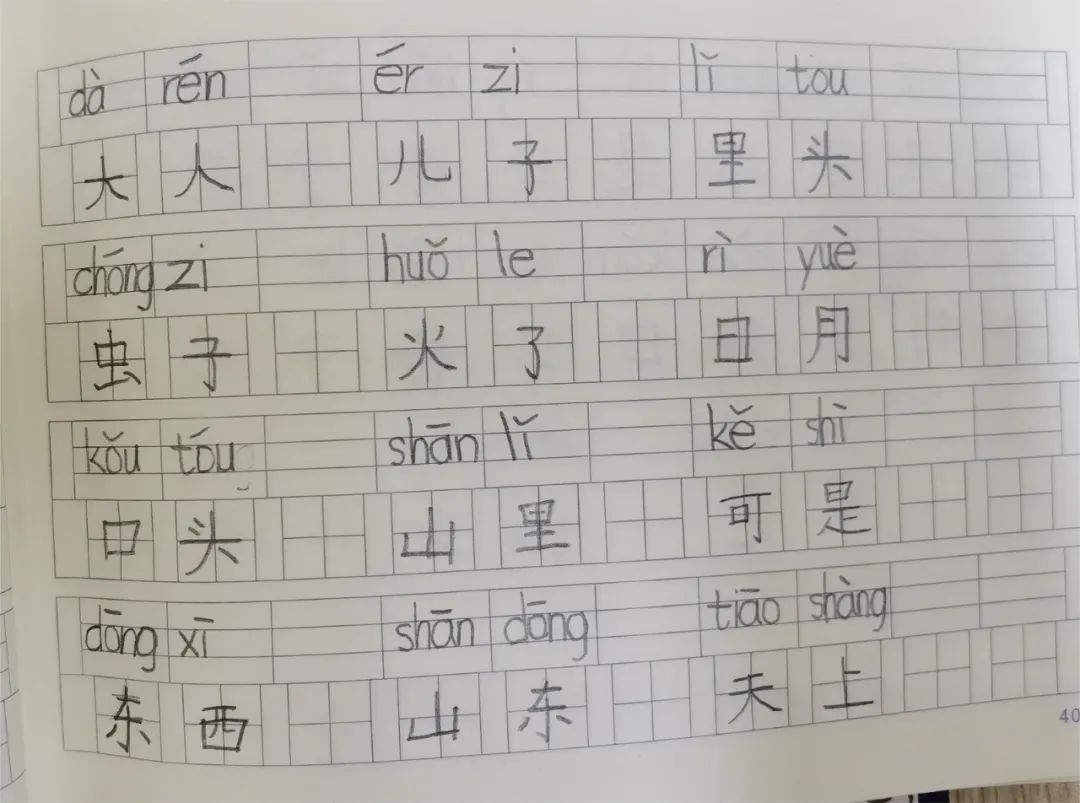 dà rén ér zi lǐ tou
大人 儿子 里头
chóng zi huǒ le rì yuè
虫子 火了 日月
kǒu tóu shān lǐ kě shì
口头 山里 可是
dōng xī shān dōng tiāo shàng
东西 山东 天上
40